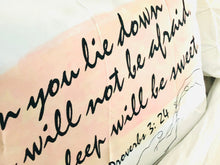 n you lie down
will not be afraid.
leep will be sweet.
Proverbs 3:24